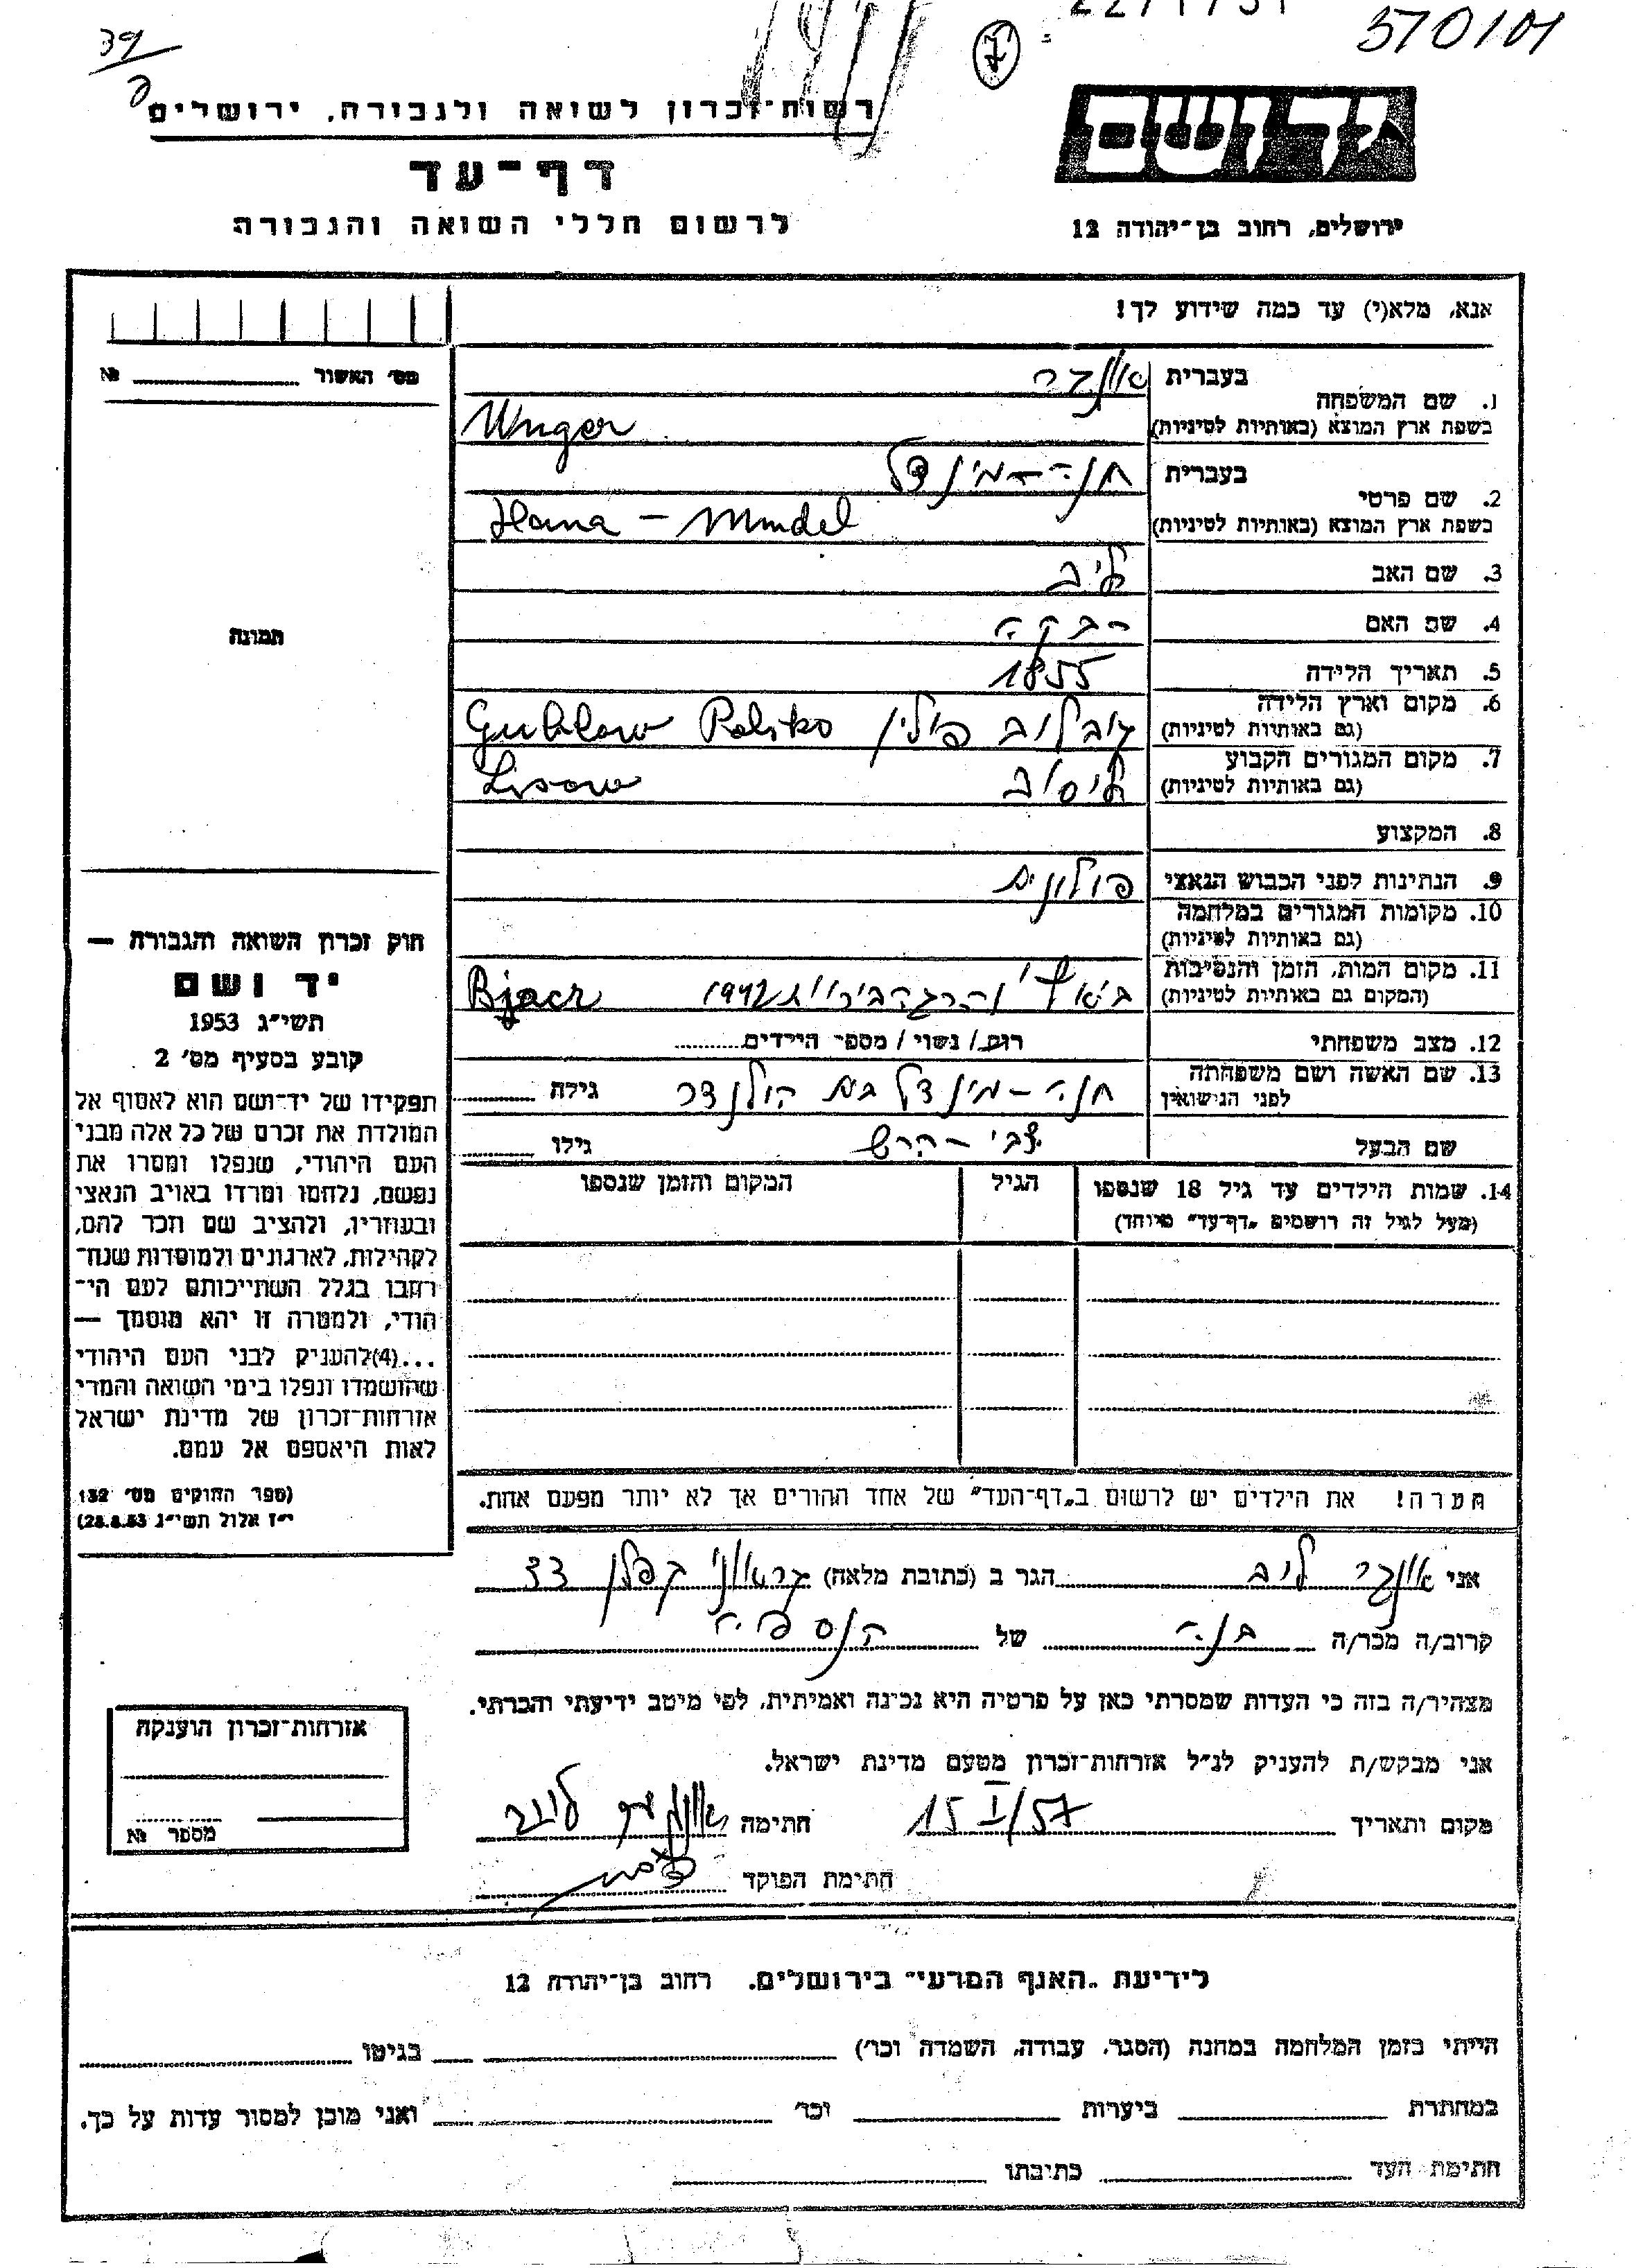 39
22/1/51
570/101
רשות־זכרון לשואה ולגבורה, ירושלים
דף־עד
לרשום חללי השואה והגבורה
יד ושם
ירושלים, רחוב בן־יהודה 12
אנא, מלא(י) עד כמה שידוע לך!
מס׳ האשור № 
1. שם המשפחה
בעברית אונגר
בשפת ארץ המוצא (באותיות לטיניות) Unger
2. שם פרטי
בעברית חנה־מינדל
בשפת ארץ המוצא (באותיות לטיניות) Hana - Mindel
3. שם האב לייב
4. שם האם רבקה
5. תאריך הלידה 1855
6. מקום וארץ הלידה
(גם באותיות לטיניות) גובלוב פולין Guhlow Polsko
7. מקום המגורים הקבוע
(גם באותיות לטיניות) ליסוב Lisow
8. המקצוע
9. הנתינות לפני הכבוש הנאצי פולונית
10. מקומות המגורים במלחמה
(גם באותיות לטיניות)
11. מקום המות, הזמן והנסיבות
(המקום גם באותיות לטיניות) 1942 Bjacz
12. מצב משפחתי רוק/ נשוי / מספר הילדים
13. שם האשה ושם משפחתה
לפני הנישואין חנה־מינדל בת הולנדר גילה
שם הבעל צבי־הרש גילו
14. שמות הילדים עד גיל 18 שנספו
(מעל לגיל זה רושמים „דף־עד״ מיוחד)
הגיל
המקום והזמן שנספו
הערה! את הילדים יש לרשום ב„דף־העד״ של אחד ההורים אך לא יותר מפעם אחת.
תמונה
חוק זכרון השואה והגבורה —
יד ושם
תשי״ג 1953
קובע בסעיף מס׳ 2
תפקידו של יד־ושם הוא לאסוף אל
המולדת את זכרם של כל אלה מבני
העם היהודי, שנפלו ומסרו את
נפשם, נלחמו ומרדו באויב הנאצי
ובעוזריו, ולהציב שם וזכר להם,
לקהילות, לארגונים ולמוסדות שנח־
רבו בגלל השתייכותם לעם הי־
הודי, ולמטרה זו יהא מוסמך —
...(4)להעניק לבני העם היהודי
שהושמדו ונפלו בימי השואה והמרי
אזרחות־זכרון של מדינת ישראל
לאות היאספם אל עמם.
(ספר החוקים מס׳ 132
י״ז אלול תשי״ג 28.8.53)
אני אונגר לייב הגר ב (כתובת מלאה) קפלן 33
קרוב/ה מכר/ה בנה של הנספה
מצהיר/ה בזה כי העדות שמסרתי כאן על פרטיה היא נכונה ואמיתית, לפי מיטב ידיעתי והכרתי.
אני מבקש/ת להעניק לנ״ל אזרחות־זכרון מטעם מדינת ישראל.
מקום ותאריך 15 I/57 חתימה
חתימת הפוקד
אזרחות־זכרון הוענקה
מספר №
לידיעת „האגף המדעי״ בירושלים, רחוב בן־יהודה 12
הייתי בזמן המלחמה במחנה (הסגר, עבודה, השמדה וכו׳) בגיטו
במחתרת ביערות וכו׳ ואני מוכן למסור עדות על כך.
חתימת העד כתיבתו